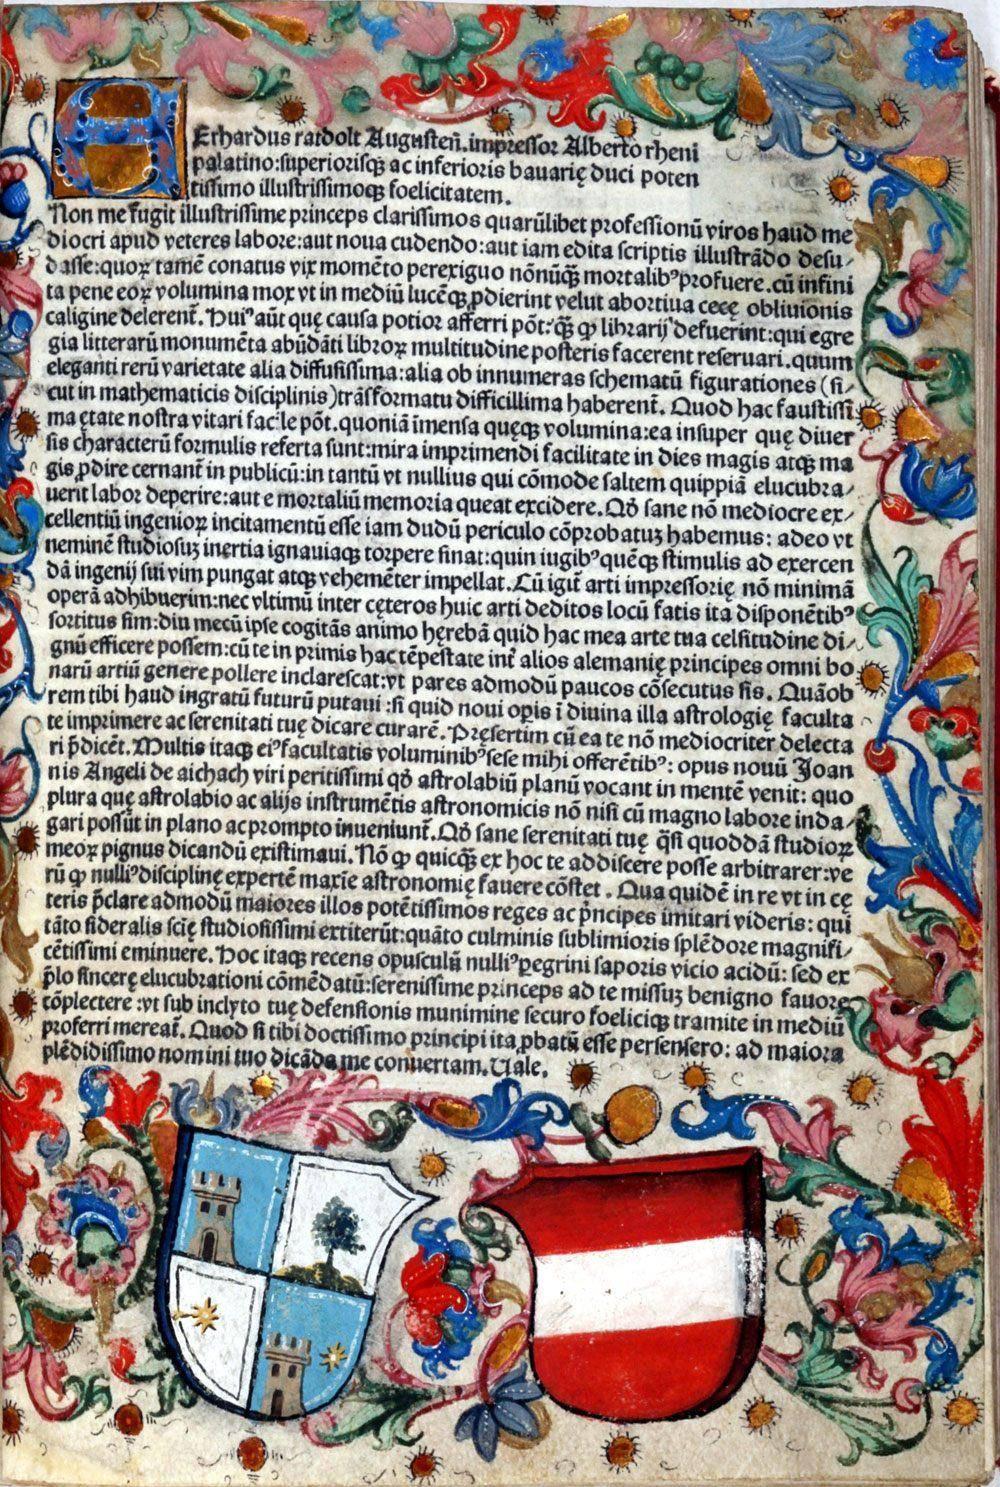 Erhardus ratdolt Augusteñ. impressor Alberto rheni
palatino: superiorisqꝫ ac inferioris bauarię duci poten
tissimo illustrissimoqꝫ foelicitatem.
Non me fugit illustrissime princeps clarissimos quarũlibet professionũ viros haud me
diocri apud veteres labore: aut noua cudendo: aut iam edita scriptis illustrãdo desu/
dasse: quoꝝ tamẽ conatus vix momẽto perexiguo nõnũqꝫ mortalibꝰ profuere. cũ infini
ta pene eoꝝ volumina mox vt in mediũ lucẽqꝫ ꝓdierint velut abortiua cecę obliuionis
caligine delerent᷑. Huiꝰ aũt quę causa potior afferri põt: qꝫ̃ ꝙ librarij defuerint: qui egre
gia litterarũ monumẽta abũdãti libroꝝ multitudine posteris facerent reseruari. quum
eleganti rerũ varietate alia diffusissima: alia ob innumeras schematũ figurationes (si/
cut in mathematicis disciplinis) trãsformatu difficillima haberent᷑. Quod hac faustissi
ma ętate nostra vitari facile põt. quoniã ĩmensa quęqꝫ volumina: ea insuper quę diuer
sis characterũ formulis referta sunt: mira imprimendi facilitate in dies magis atqꝫ ma
gis ꝓdire cernant᷑ in publicũ: in tantũ vt nullius qui cõmode saltem quippiã elucubra/
uerit labor deperire: aut e mortaliũ memoria queat excidere. Qđ sane nõ mediocre ex/
cellentiũ ingenioꝝ incitamentũ esse iam dudũ periculo cõprobatuꝫ habemus: adeo vt
neminẽ studiosuꝫ inertia ignauiaqꝫ torpere sinat: quin iugibꝰ quẽqꝫ stimulis ad exercen
dã ingenij sui vim pungat atqꝫ vehemẽter impellat. Cũ igit᷑ arti impressorię nõ minimã
operã adhibuerim: nec vltimũ inter cęteros huic arti deditos locũ fatis ita disponẽtibꝰ
sortitus sim: diu mecũ ipse cogitãs animo hęrebã quid hac mea arte tua celsitudine di/
gnũ efficere possem: cũ te in primis hac tẽpestate int᷑ alios alemanię principes omni bo
narũ artiũ genere pollere inclarescat: vt pares admodũ paucos cõsecutus sis. Quãob
rem tibi haud ingratũ futurũ putaui: si quid noui oꝑis ĩ diuina illa astrologię faculta
te imprimere ac serenitati tuę dicare curarẽ. Pręsertim cũ ea te nõ mediocriter delecta
ri p̃dicẽt. Multis itaqꝫ eiꝰ facultatis voluminibꝰ sese mihi offerẽtibꝰ: opus nouũ Joan
nis Angeli de aichach viri peritissimi qđ astrolabiũ planũ vocant in mentẽ venit: quo
plura quę astrolabio ac alijs instrumẽtis astronomicis nõ nisi cũ magno labore inda/
gari possũt in plano ac prompto inueniunt᷑. Qđ sane serenitati tuę q̃si quoddã studioꝝ
meoꝝ pignus dicandũ existimaui. Nõ ꝙ quicqꝫ̃ ex hoc te addiscere posse arbitrarer: ve
rũ ꝙ nulliꝰ disciplinę expertẽ maxĩe astronomię fauere cõstet. Qua quidẽ in re vt in cę
teris p̃clare admodũ maiores illos potẽtissimos reges ac p̃ncipes imitari videris: qui
tãto sideralis sciẽ studiosissimi extiterũt: quãto culminis sublimioris splẽdore magnifi/
cẽtissimi eminuere. Hoc itaqꝫ recens opusculũ nulliꝰ ꝑegrini saporis vicio acidũ: sed ex
p̃lo sincerę elucubrationi cõmẽdatũ: serenissime princeps ad te missuꝫ benigno fauore
cõplectere: vt sub inclyto tuę defensionis munimine securo foeliciqꝫ tramite in mediũ
proferri mereat᷑. Quod si tibi doctissimo principi ita ꝓbatũ esse persensero: ad maiora
plẽdidissimo nomini tuo dicãda me conuertam. Uale.